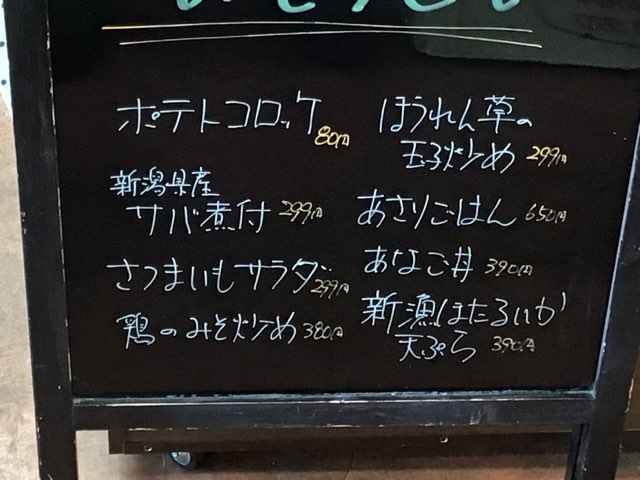 ポテトコロッケ 80円
新潟県産
サバ煮付 299円
さつまいもサラダ 299円
鶏のみそ炒め 380円
ほうれん草の
玉子炒め 299円
あさりごはん 650円
あなご丼 390円
新漁ほたるいか
天ぷら 390円